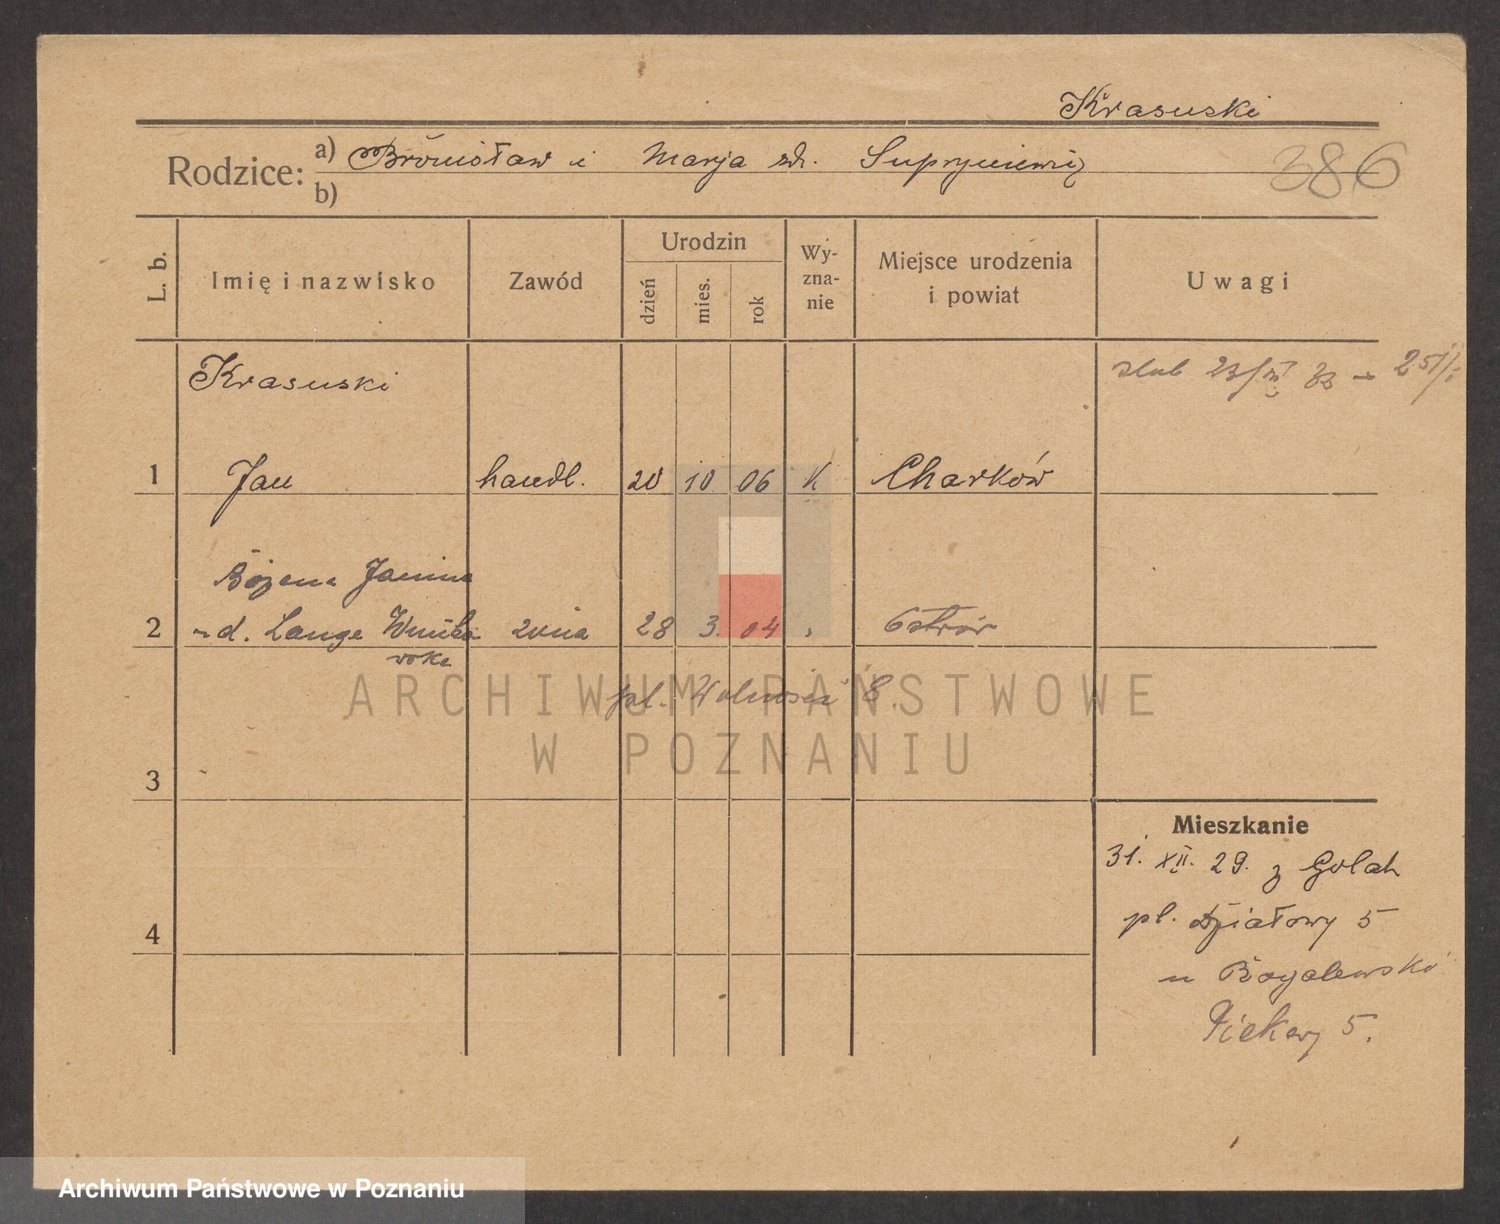 Krasuski
Rodzice: a) Bronisław i Marja zd. Supryniewicz
b)
386
L. b.
Imię i nazwisko
Zawód
Urodzin
dzień
mies.
rok
Wy-
zna-
nie
Miejsce urodzenia
i powiat
Uwagi
Krasuski
ślub 23/ 32
1 Jan handl. 20 10 06 K Charków
Bożena Janina
2 d. Lange żona 28 3. 04 " Ostrów
pl. Wolności 8.
3
4
Mieszkanie
31. XII. 29. z Golah
pl. Działowy 5
u
Piekary 5.
ARCHIWUM PAŃSTWOWE
W POZNANIU
Archiwum Państwowe w Poznaniu